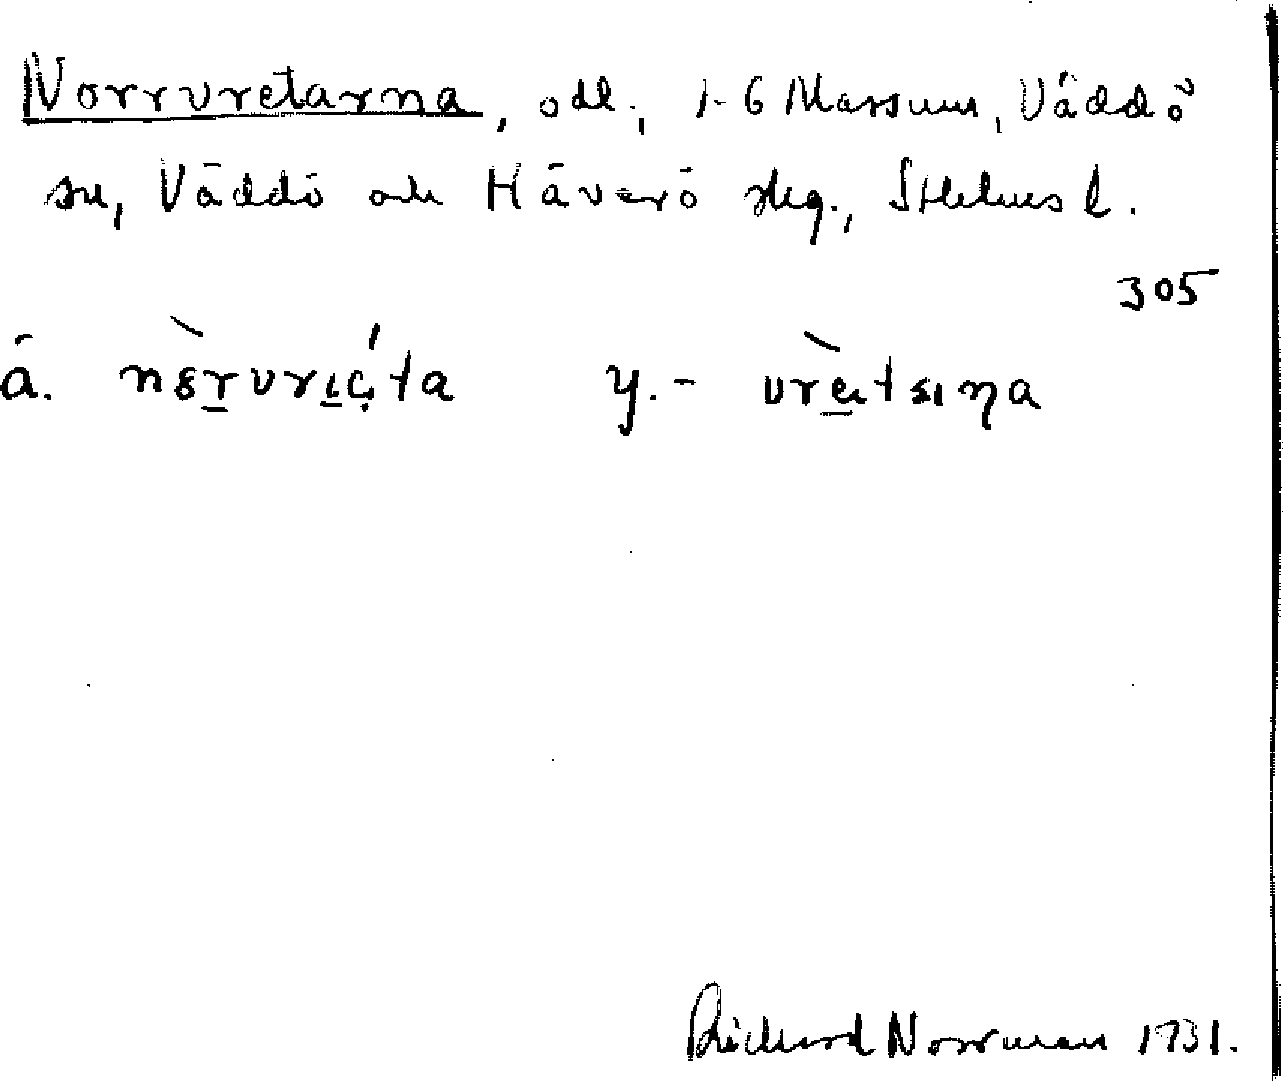 Norrvretarna, odl., 1-6 Massum, Väddö
sn, Väddö och Häverö skg., Sthlms l.
305
ä. nɛrvrıc̣ta y. - vrɛıtsıŋa
Richard Norrman 1931.